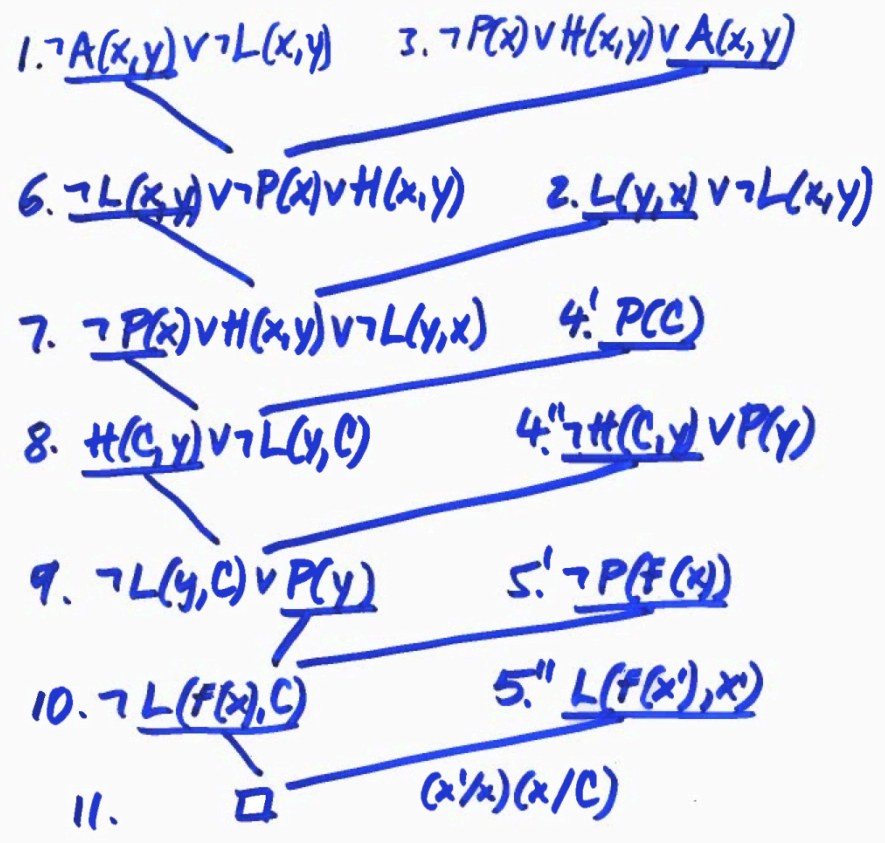 1. ¬A(x,y) ∨ ¬L(x,y) 3. ¬P(x) ∨ H(x,y) ∨ A(x,y)
6. ¬L(x,y) ∨ ¬P(x) ∨ H(x,y) 2. L(y,x) ∨ ¬L(x,y)
7. ¬P(x) ∨ H(x,y) ∨ ¬L(y,x) 4.' P(C)
8. H(C,y) ∨ ¬L(y,C) 4." ¬H(C,y) ∨ P(y)
9. ¬L(y,C) ∨ P(y) 5.' ¬P(f(x))
10. ¬L(f(x),C) 5." L(f(x'),x')
11. □ (x'/x)(x/C)